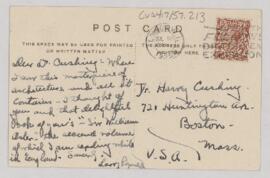 Cus417/57.213
POST CARD
THIS SPACE MAY BE USED FOR PRINTED
OR WRITTEN MATTER
THE ADDRESS ONLY TO
BE WRITTEN HERE
Dear Dr. Cushing - When
I saw this masterpiece of
architecture and all it
contains - I thought of
you and that delightful
book of your's - "Sir William
Osler". the second volume
of which I am reading while
in England
Dr. Harvey Cushing
720 Huntington Ave
Boston
Mass.
U.S.A.